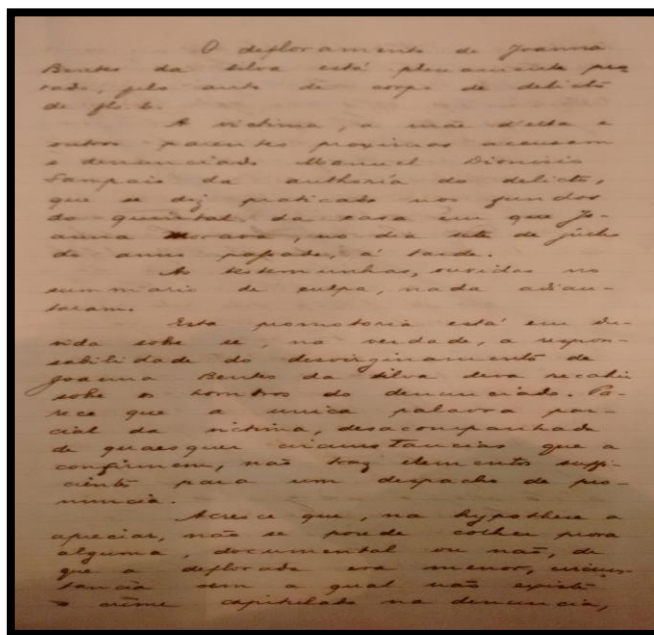 O defloramento de Joanna
Bentes da Silva está plenamente pro-
vado, pelo auto de corpo de delicto
de fls. 6.
A victima, a mãe d'ella e
outros parentes proximos accusam
o denunciado Manuel Dionisio
Sampaio da authoria do delicto,
que se diz praticado nos fundos
do quintal da casa em que Jo-
anna morava, no dia sete de julho
do anno passado, á tarde.
As testemunhas, ouvidas no
summario de culpa, nada adian-
taram.
Esta promotoria está em du-
vida sobre se, na verdade, a respon-
sabilidade do desvirginamento de
Joanna Bentes da Silva deva recahir
sobre os hombros do denunciado. Pa-
rece que a unica palavra par-
cial da victima, desacompanhada
de quaesquer circumstancias que a
confirmem, não traz elementos suffi-
ciente para um despacho de pro-
nuncia.
Acresce que, na hypothese a
apreciar, não se poude colher prova
alguma, documental ou não, de
que a deflorada era menor, circums-
tancia sem a qual não existe
o crime capitulado na denuncia,